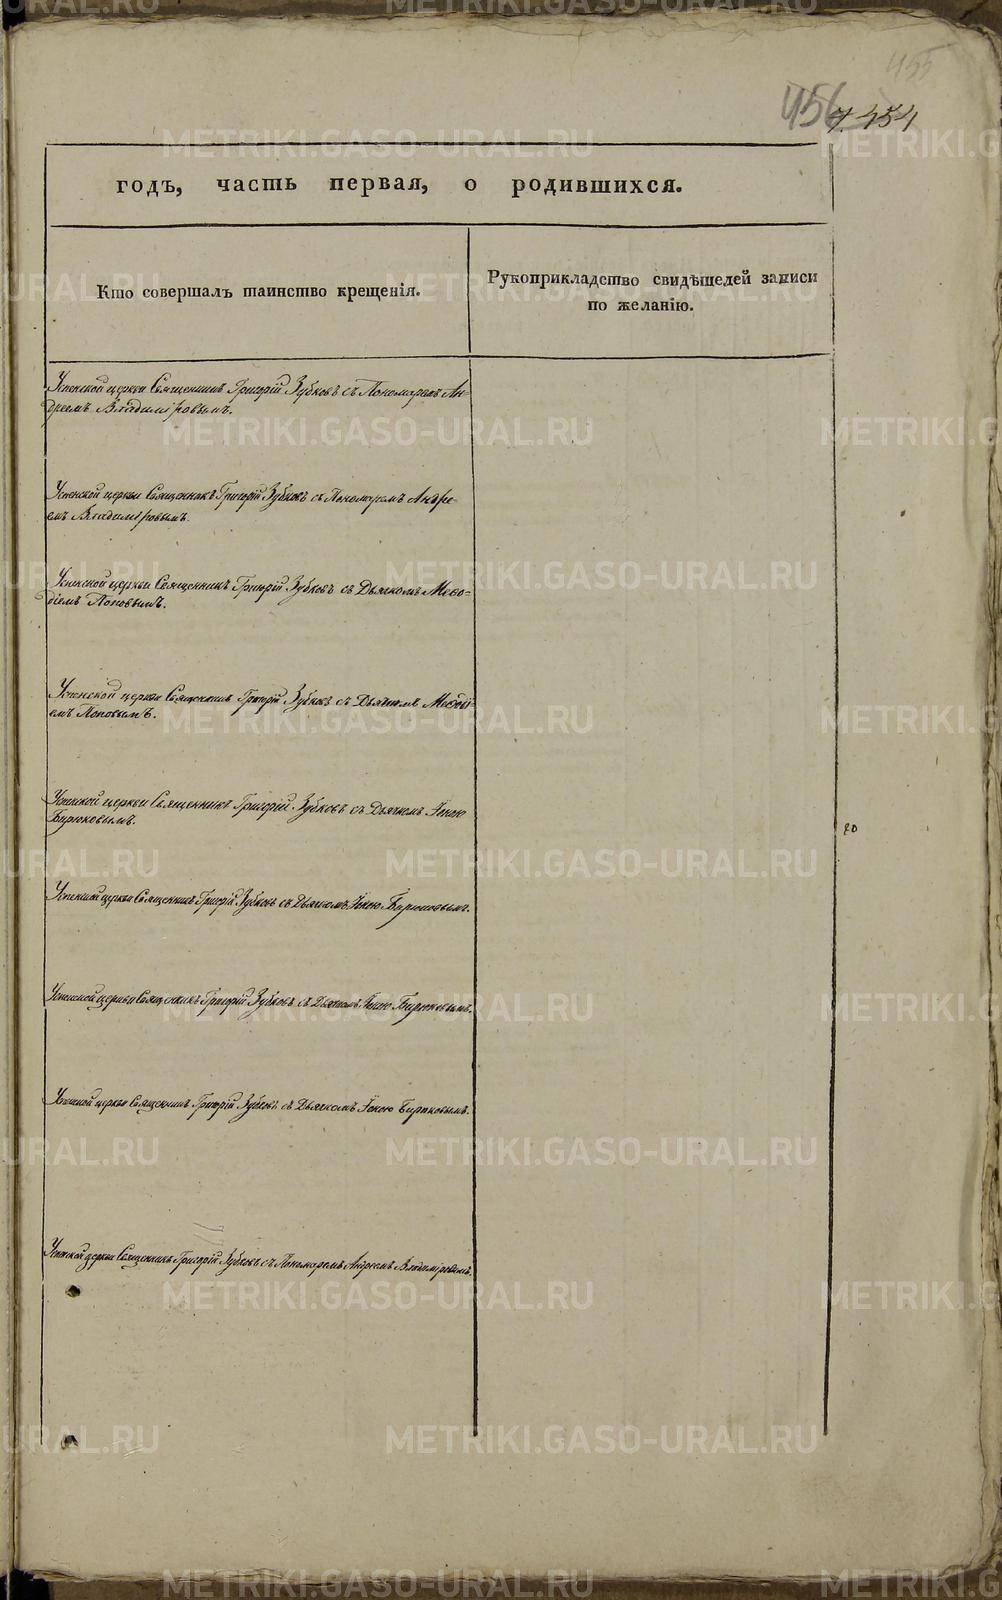 455
456
454
годъ, часть первая, о родившихся.
Кто совершалъ таинство крещенія.
Рукоприкладство свидѣтелей записи
по желанію.
Успенской церкви Священникъ Григорій Зубковъ съ Пономаремъ Ан-
дреемъ Владиміровымъ.
Успенской церкви Священникъ Григорій Зубковъ съ Пономаремъ Андре-
емъ Владиміровымъ.
Успенской церкви Священникъ Григорій Зубковъ съ Дьячкомъ Меѳо-
діемъ Поповымъ.
Успенской церкви Священникъ Григорій Зубковъ съ Дьячкомъ Меѳоді-
емъ Поповымъ.
Успенской церкви Священникъ Григорій Зубковъ съ Дьячкомъ
Бирюковымъ.
20
Успенской церкви Священникъ Григорій Зубковъ съ Дьячкомъ Бирюковымъ.
Успенской церкви Священникъ Григорій Зубковъ съ Дьячкомъ Бирюковымъ.
Успенской церкви Священникъ Григорій Зубковъ съ Дьячкомъ Бирюковымъ.
Успенской церкви Священникъ Григорій Зубковъ съ Пономаремъ Андреемъ Владиміровымъ.
METRIKI.GASO-URAL.RU